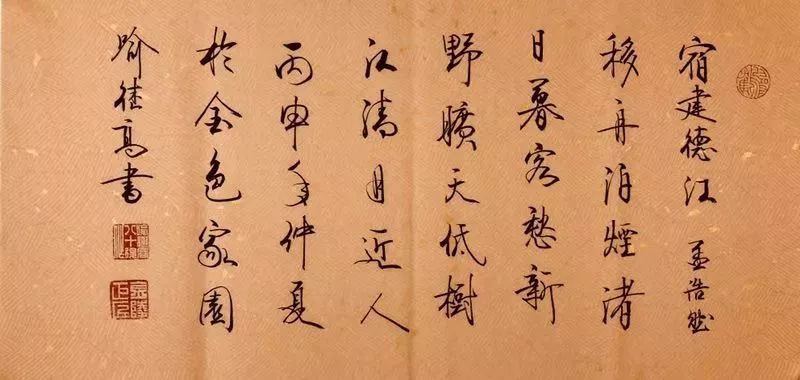 宿建德江 孟浩然
移舟泊煙渚
日暮客愁新
野曠天低樹
江清月近人
丙申年仲夏
於金色家園
喻继高書